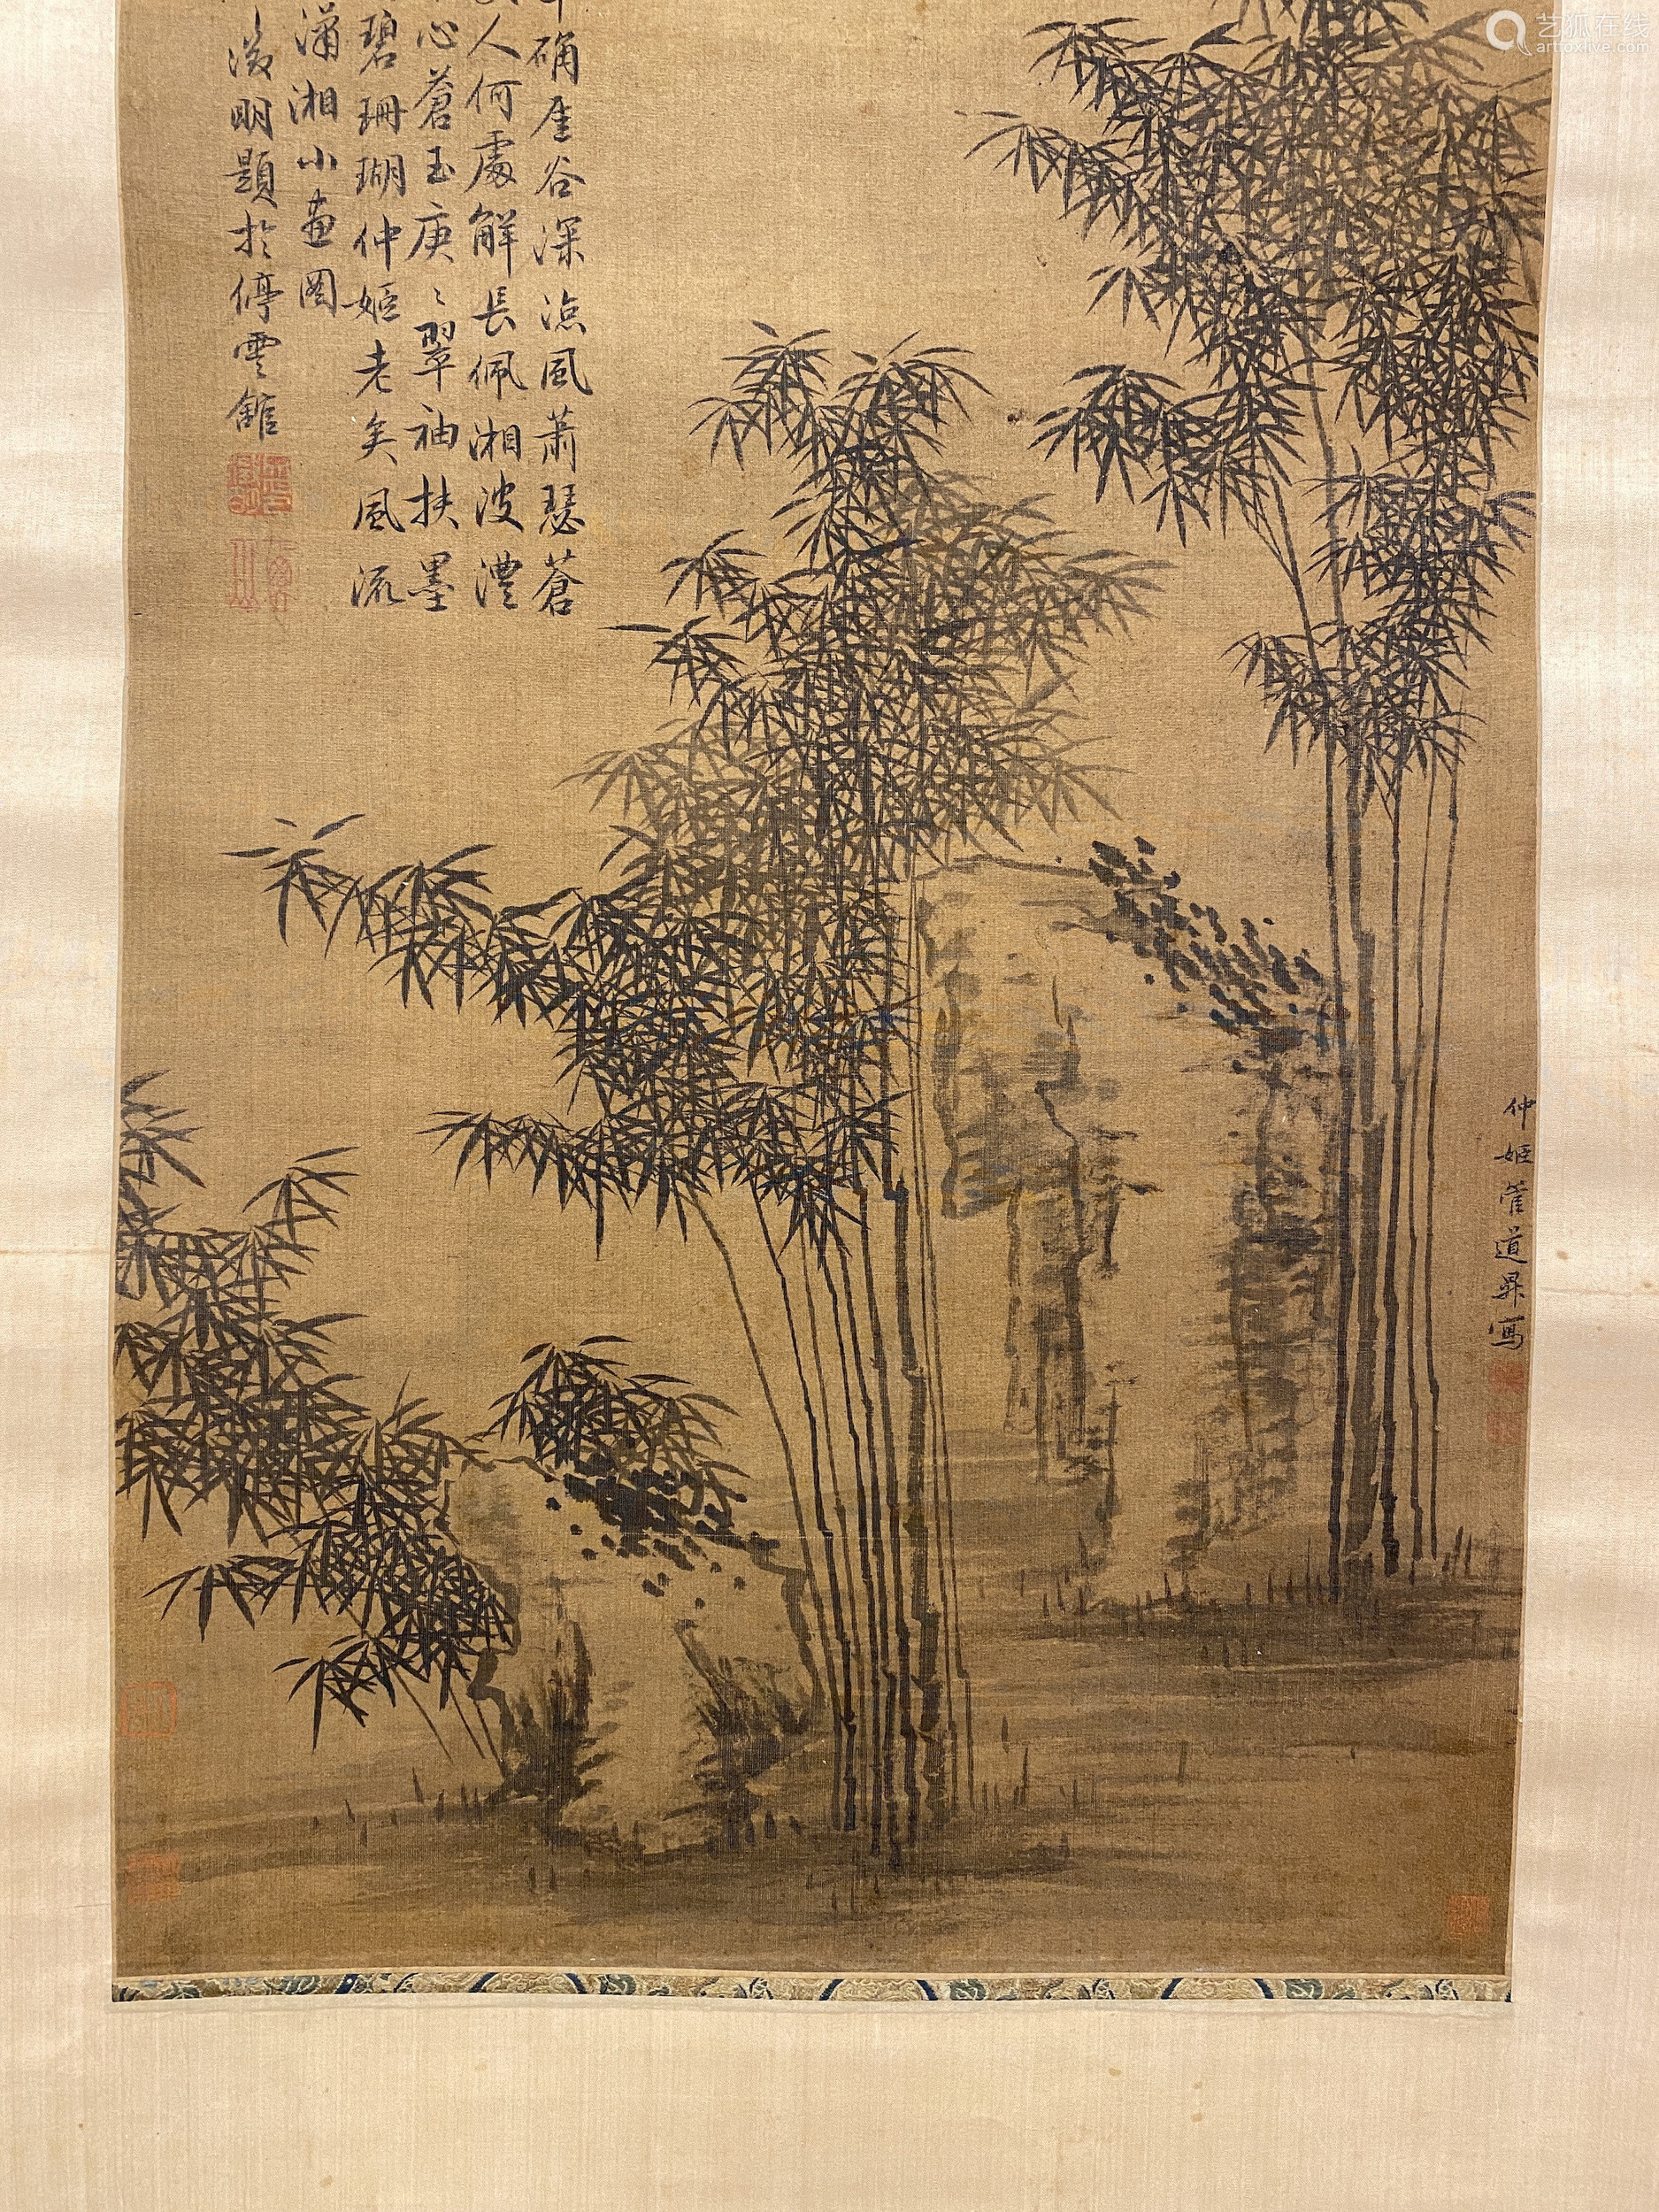 确崖谷深凉风萧瑟苍
人何處解長佩湘波澧
心蒼玉庚〻翠袖扶墨
碧珊瑚仲姬老矣風流
瀟湘小畫图
徵明題於停雲館
仲姬管道昇寫
艺狐在线
artfoxlive.com